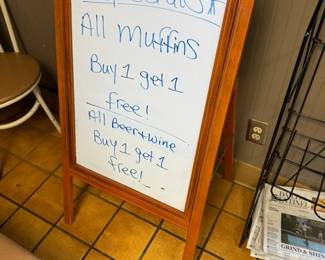 All muffins
Buy 1 get 1
free!
All Beer + wine
Buy 1 get 1
free!
GRIND & SHINE